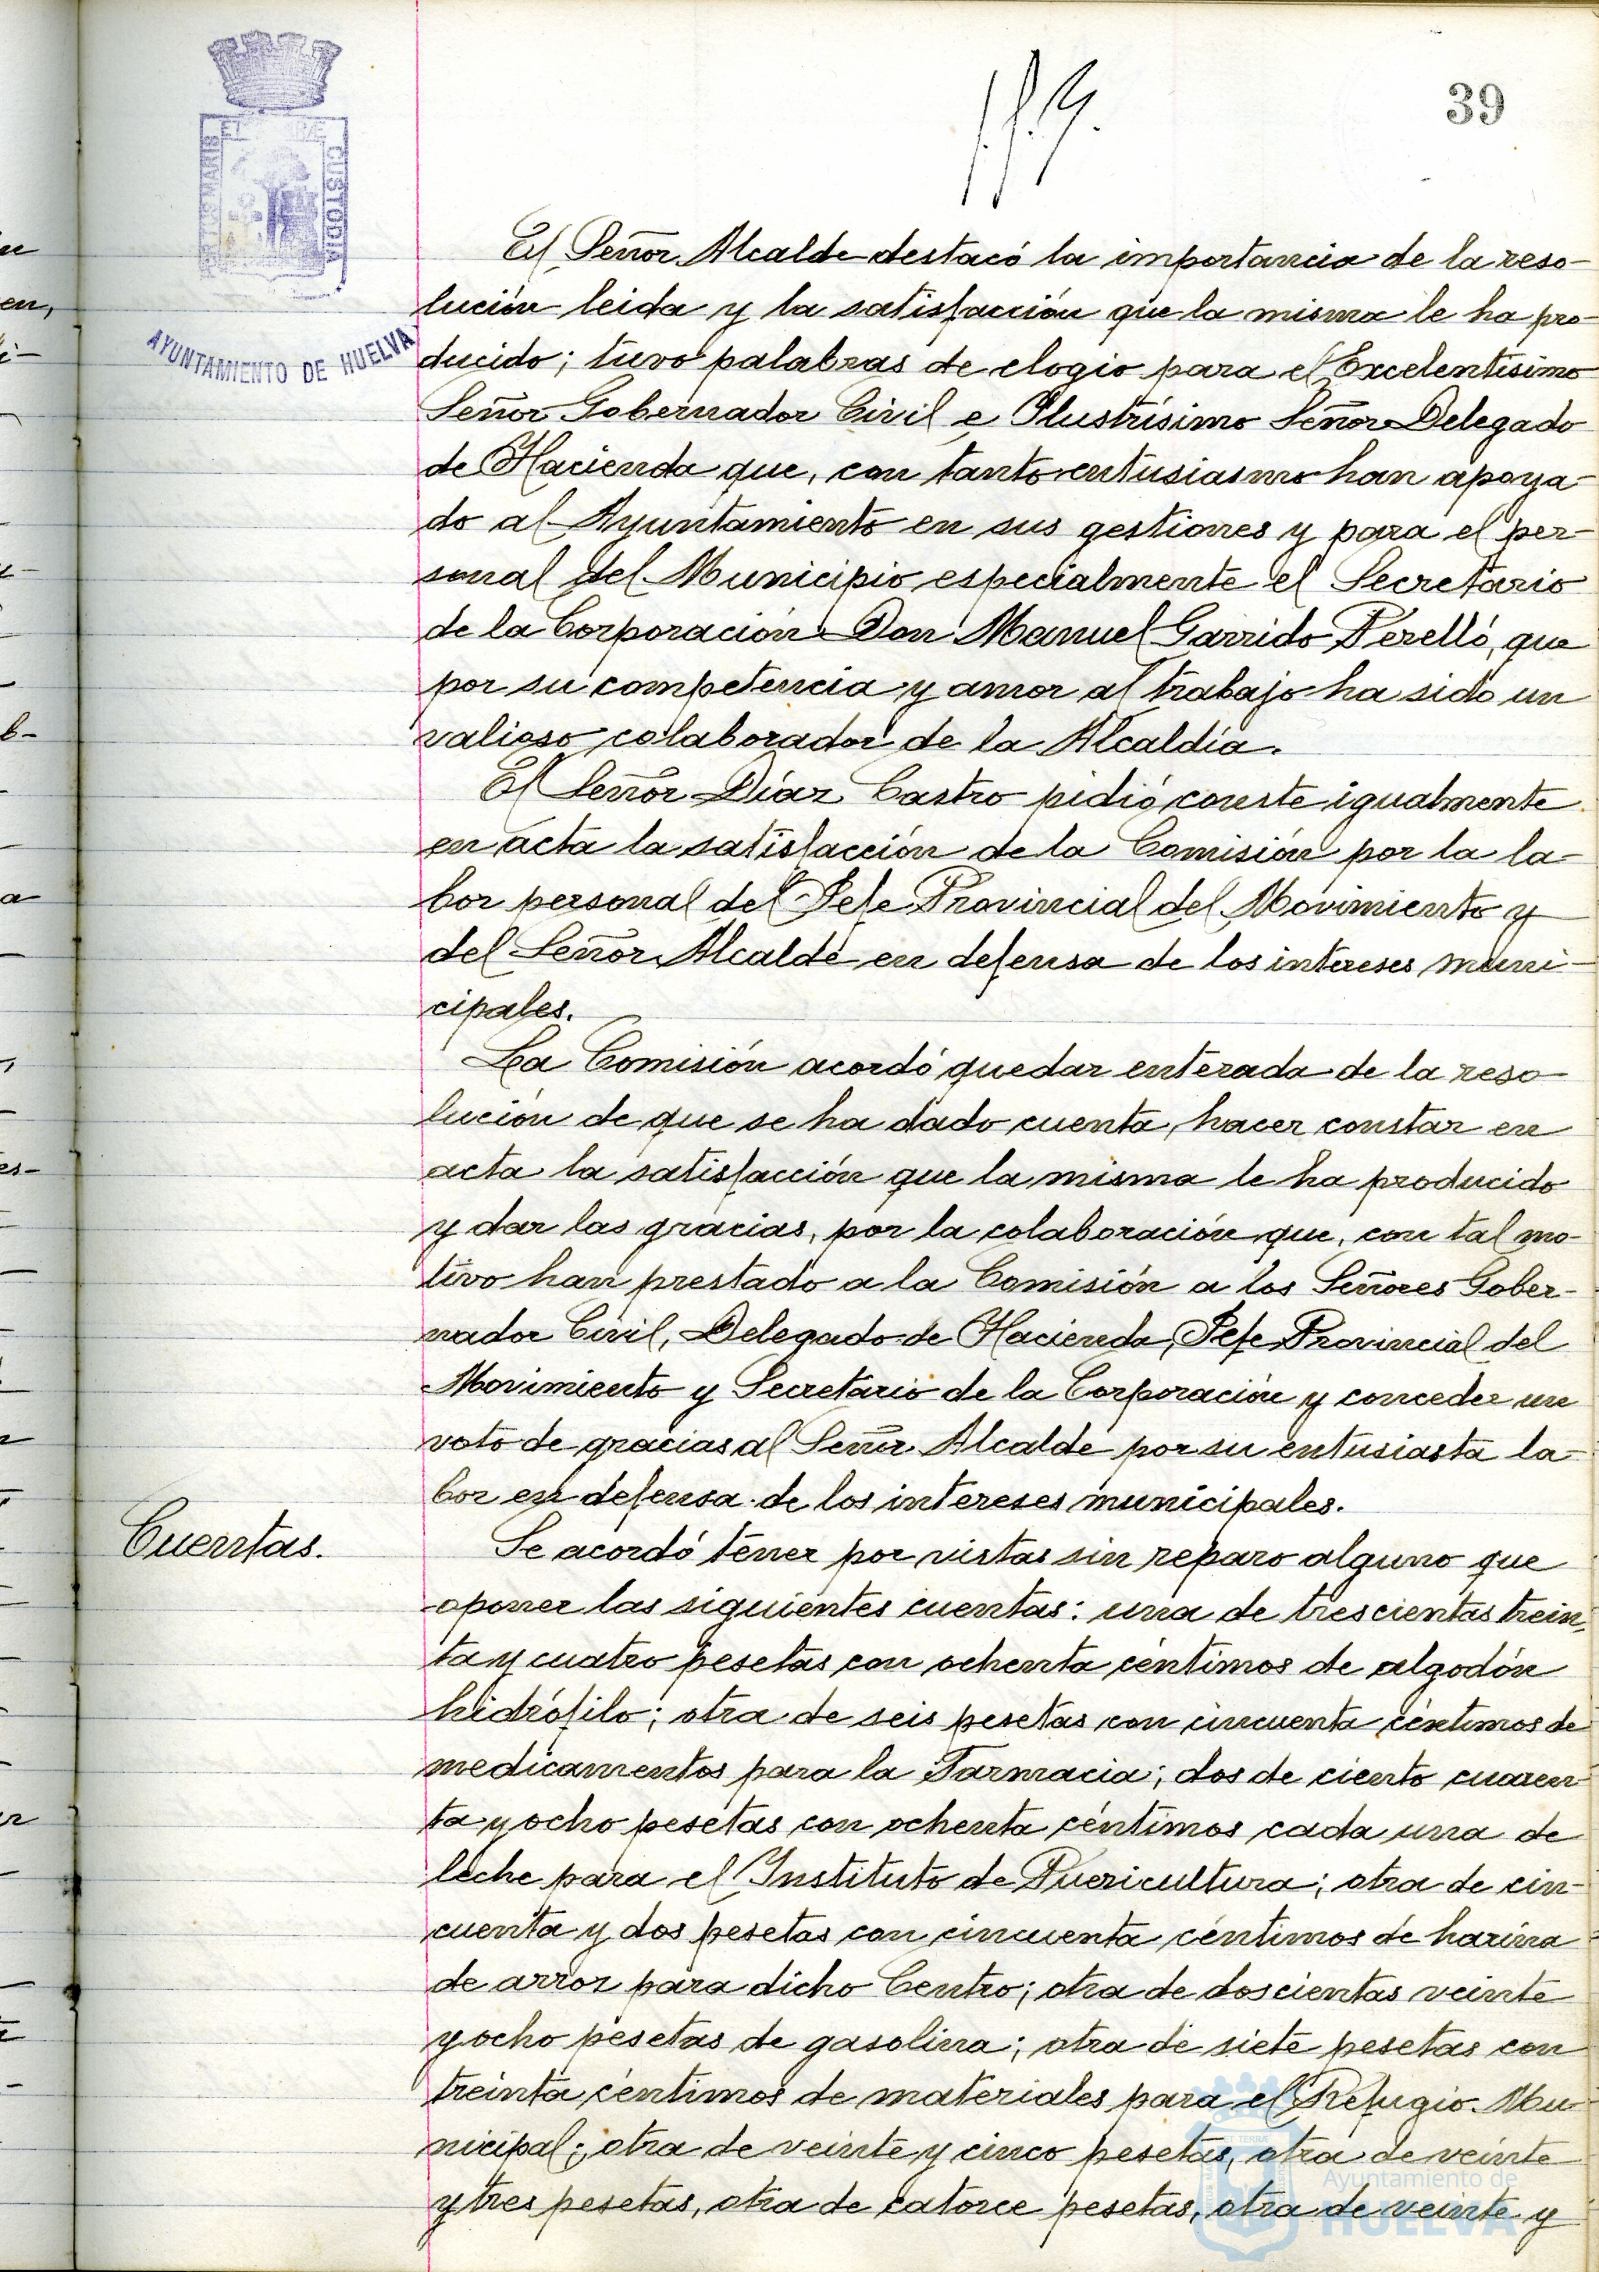 39
ET TERRAE
CUSTODIA
MARIS
AYUNTAMIENTO DE HUELVA
El Señor Alcalde destacó la importancia de la reso-
lución leida y la satisfacción que la misma le ha pro-
ducido; tuvo palabras de elogio para el Excelentísimo
Señor Gobernador Civil e Ilustrísimo Señor Delegado
de Hacienda que, con tanto entusiasmo han apoya-
do al Ayuntamiento en sus gestiones y para el per-
sonal del Municipio especialmente el Secretario
de la Corporación Don Manuel Garrido Perelló, que
por su competencia y amor al trabajo ha sido un
valioso colaborador de la Alcaldía.
El Señor Díaz Castro pidió conste igualmente
en acta la satisfacción de la Comisión por la la-
bor personal del Jefe Provincial del Movimiento y
del Señor Alcalde en defensa de los intereses muni-
cipales.
La Comisión acordó quedar enterada de la reso-
lución de que se ha dado cuenta, hacer constar en
acta la satisfacción que la misma le ha producido
y dar las gracias, por la colaboración que, con tal mo-
tivo han prestado a la Comisión a los Señores Gober-
nador Civil, Delegado de Hacienda, Jefe Provincial del
Movimiento y Secretario de la Corporación y conceder un
voto de gracias al Señor Alcalde por su entusiasta la-
bor en defensa de los intereses municipales.
Cuentas.
Se acordó tener por vistas sin reparo alguno que
oponer las siguientes cuentas: una de trescientas trein-
ta y cuatro pesetas con ochenta céntimos de algodón
hidrófilo; otra de seis pesetas con cincuenta céntimos de
medicamentos para la Farmacia; dos de ciento cuaren-
ta y ocho pesetas con ochenta céntimos cada una de
leche para el Instituto de Puericultura; otra de cin-
cuenta y dos pesetas con cincuenta céntimos de harina
de arroz para dicho Centro; otra de doscientas veinte
y ocho pesetas de gasolina; otra de siete pesetas con
treinta céntimos de materiales para el Refugio Mu-
nicipal; otra de veinte y cinco pesetas, otra de veinte
y tres pesetas, otra de catorce pesetas, otra de veinte y
Ayuntamiento de
HUELVA